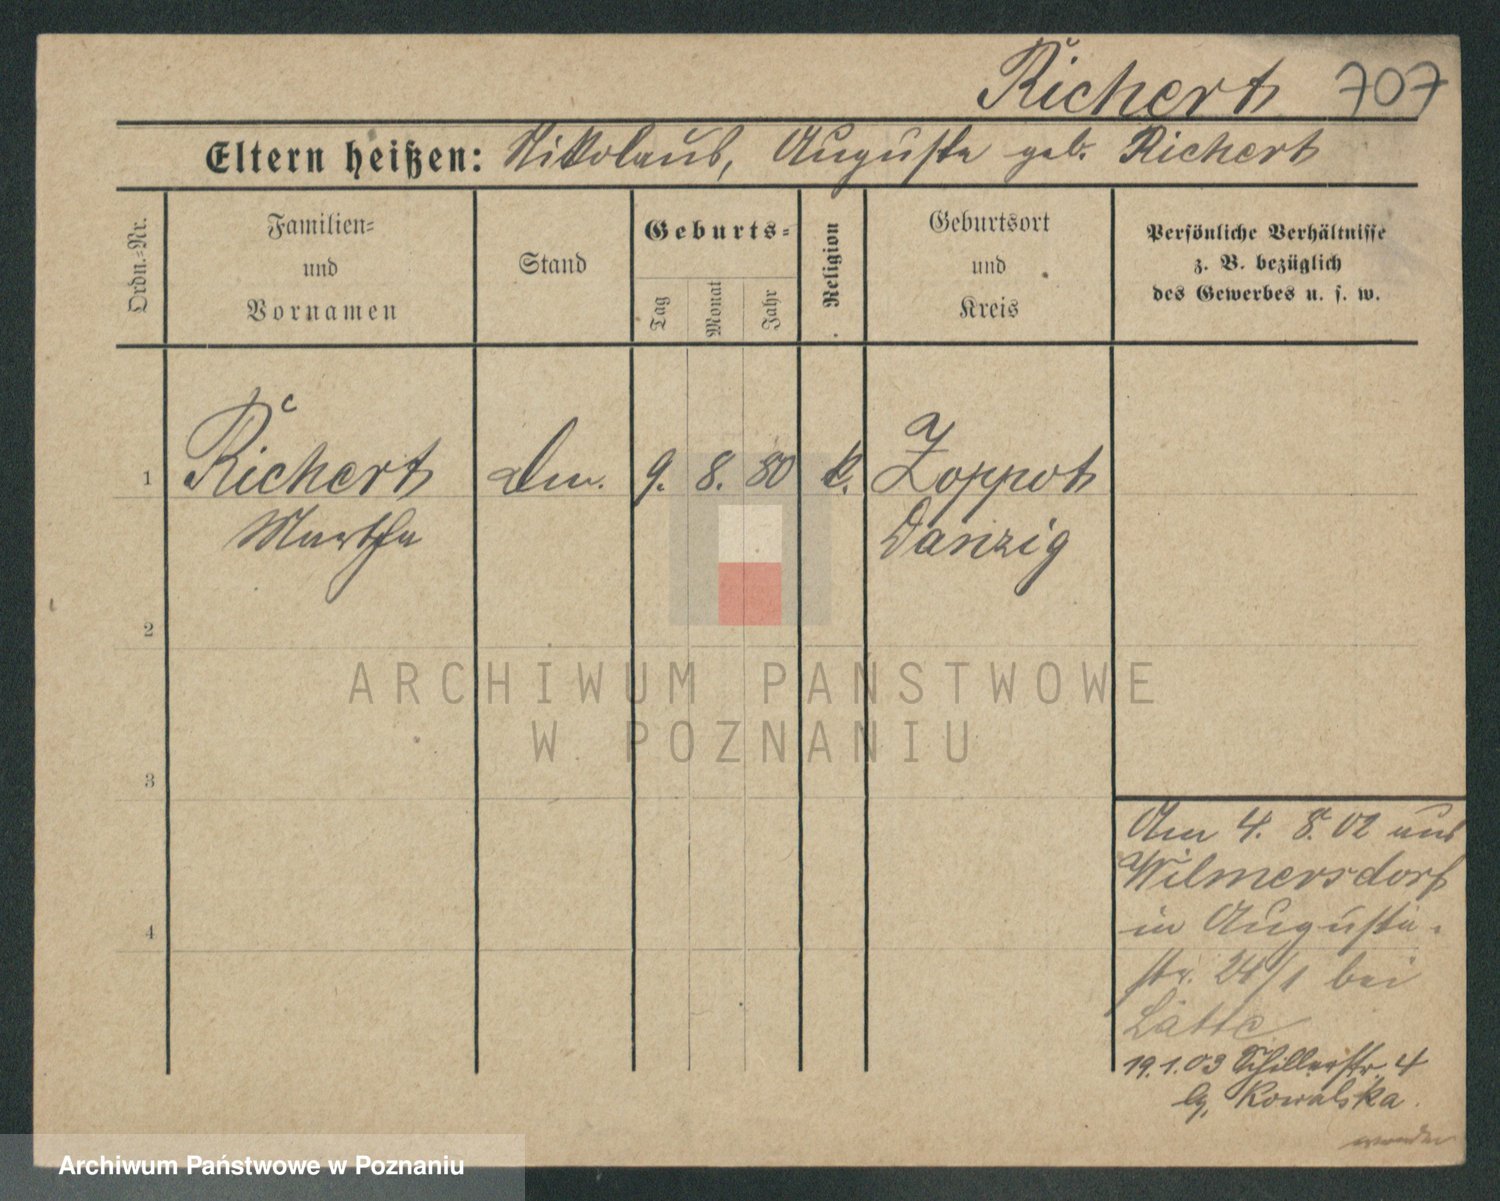 Richert 707
Eltern heißen: Nikolaus, Auguste geb. Richert
Ordn.-Nr.
Familien-
und
Vornamen
Stand
Geburts-
Tag
Monat
Jahr
Religion
Geburtsort
und
Kreis
Persönliche Verhältnisse
z. B. bezüglich
des Gewerbes u. s. w.
1 Richert 9. 8. 80 k. Zoppot
Martha Danzig
2
ARCHIWUM PAŃSTWOWE
W POZNANIU
3
Am 4. 8. 02 aus
Wilmersdorf
in Augusta-
4
str. 24/1 bei
Lätte
19.1.03 Schillerstr. 4
bg. Kowalska.
wenden
Archiwum Państwowe w Poznaniu